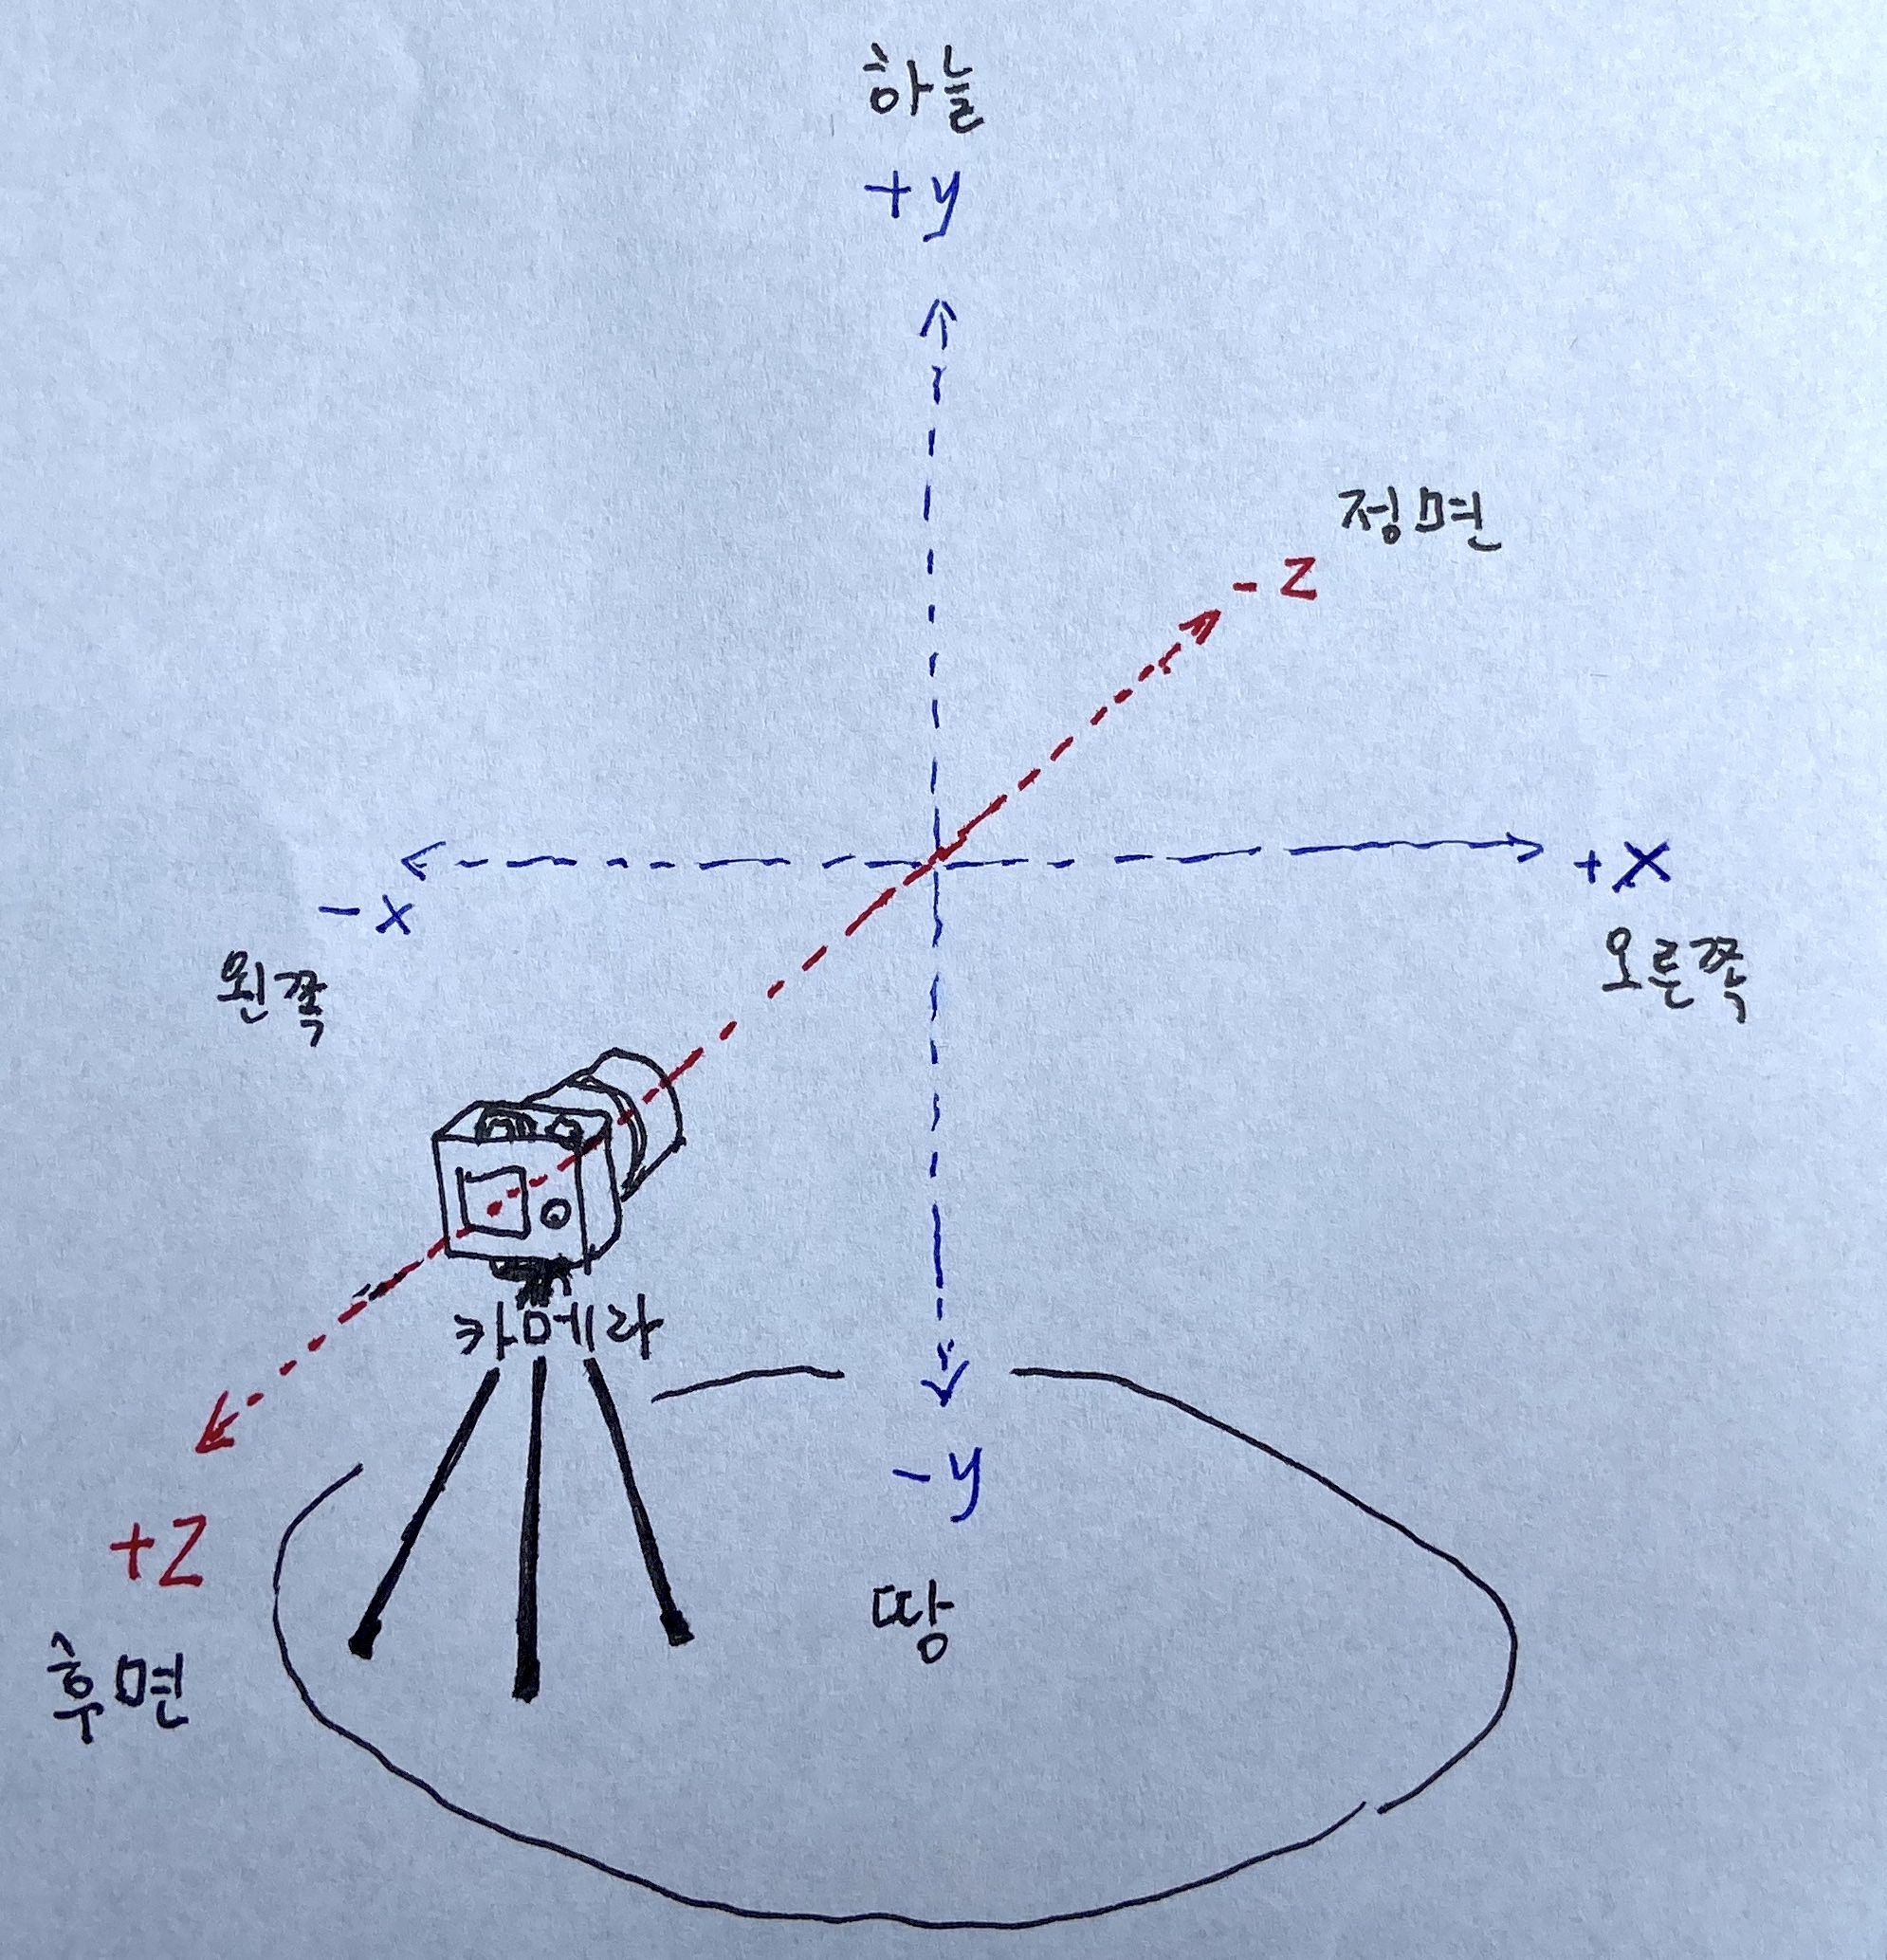 하늘
+y
정면
- Z
+X
- x
왼쪽
오른쪽
카메라
- y
+Z
땅
후면